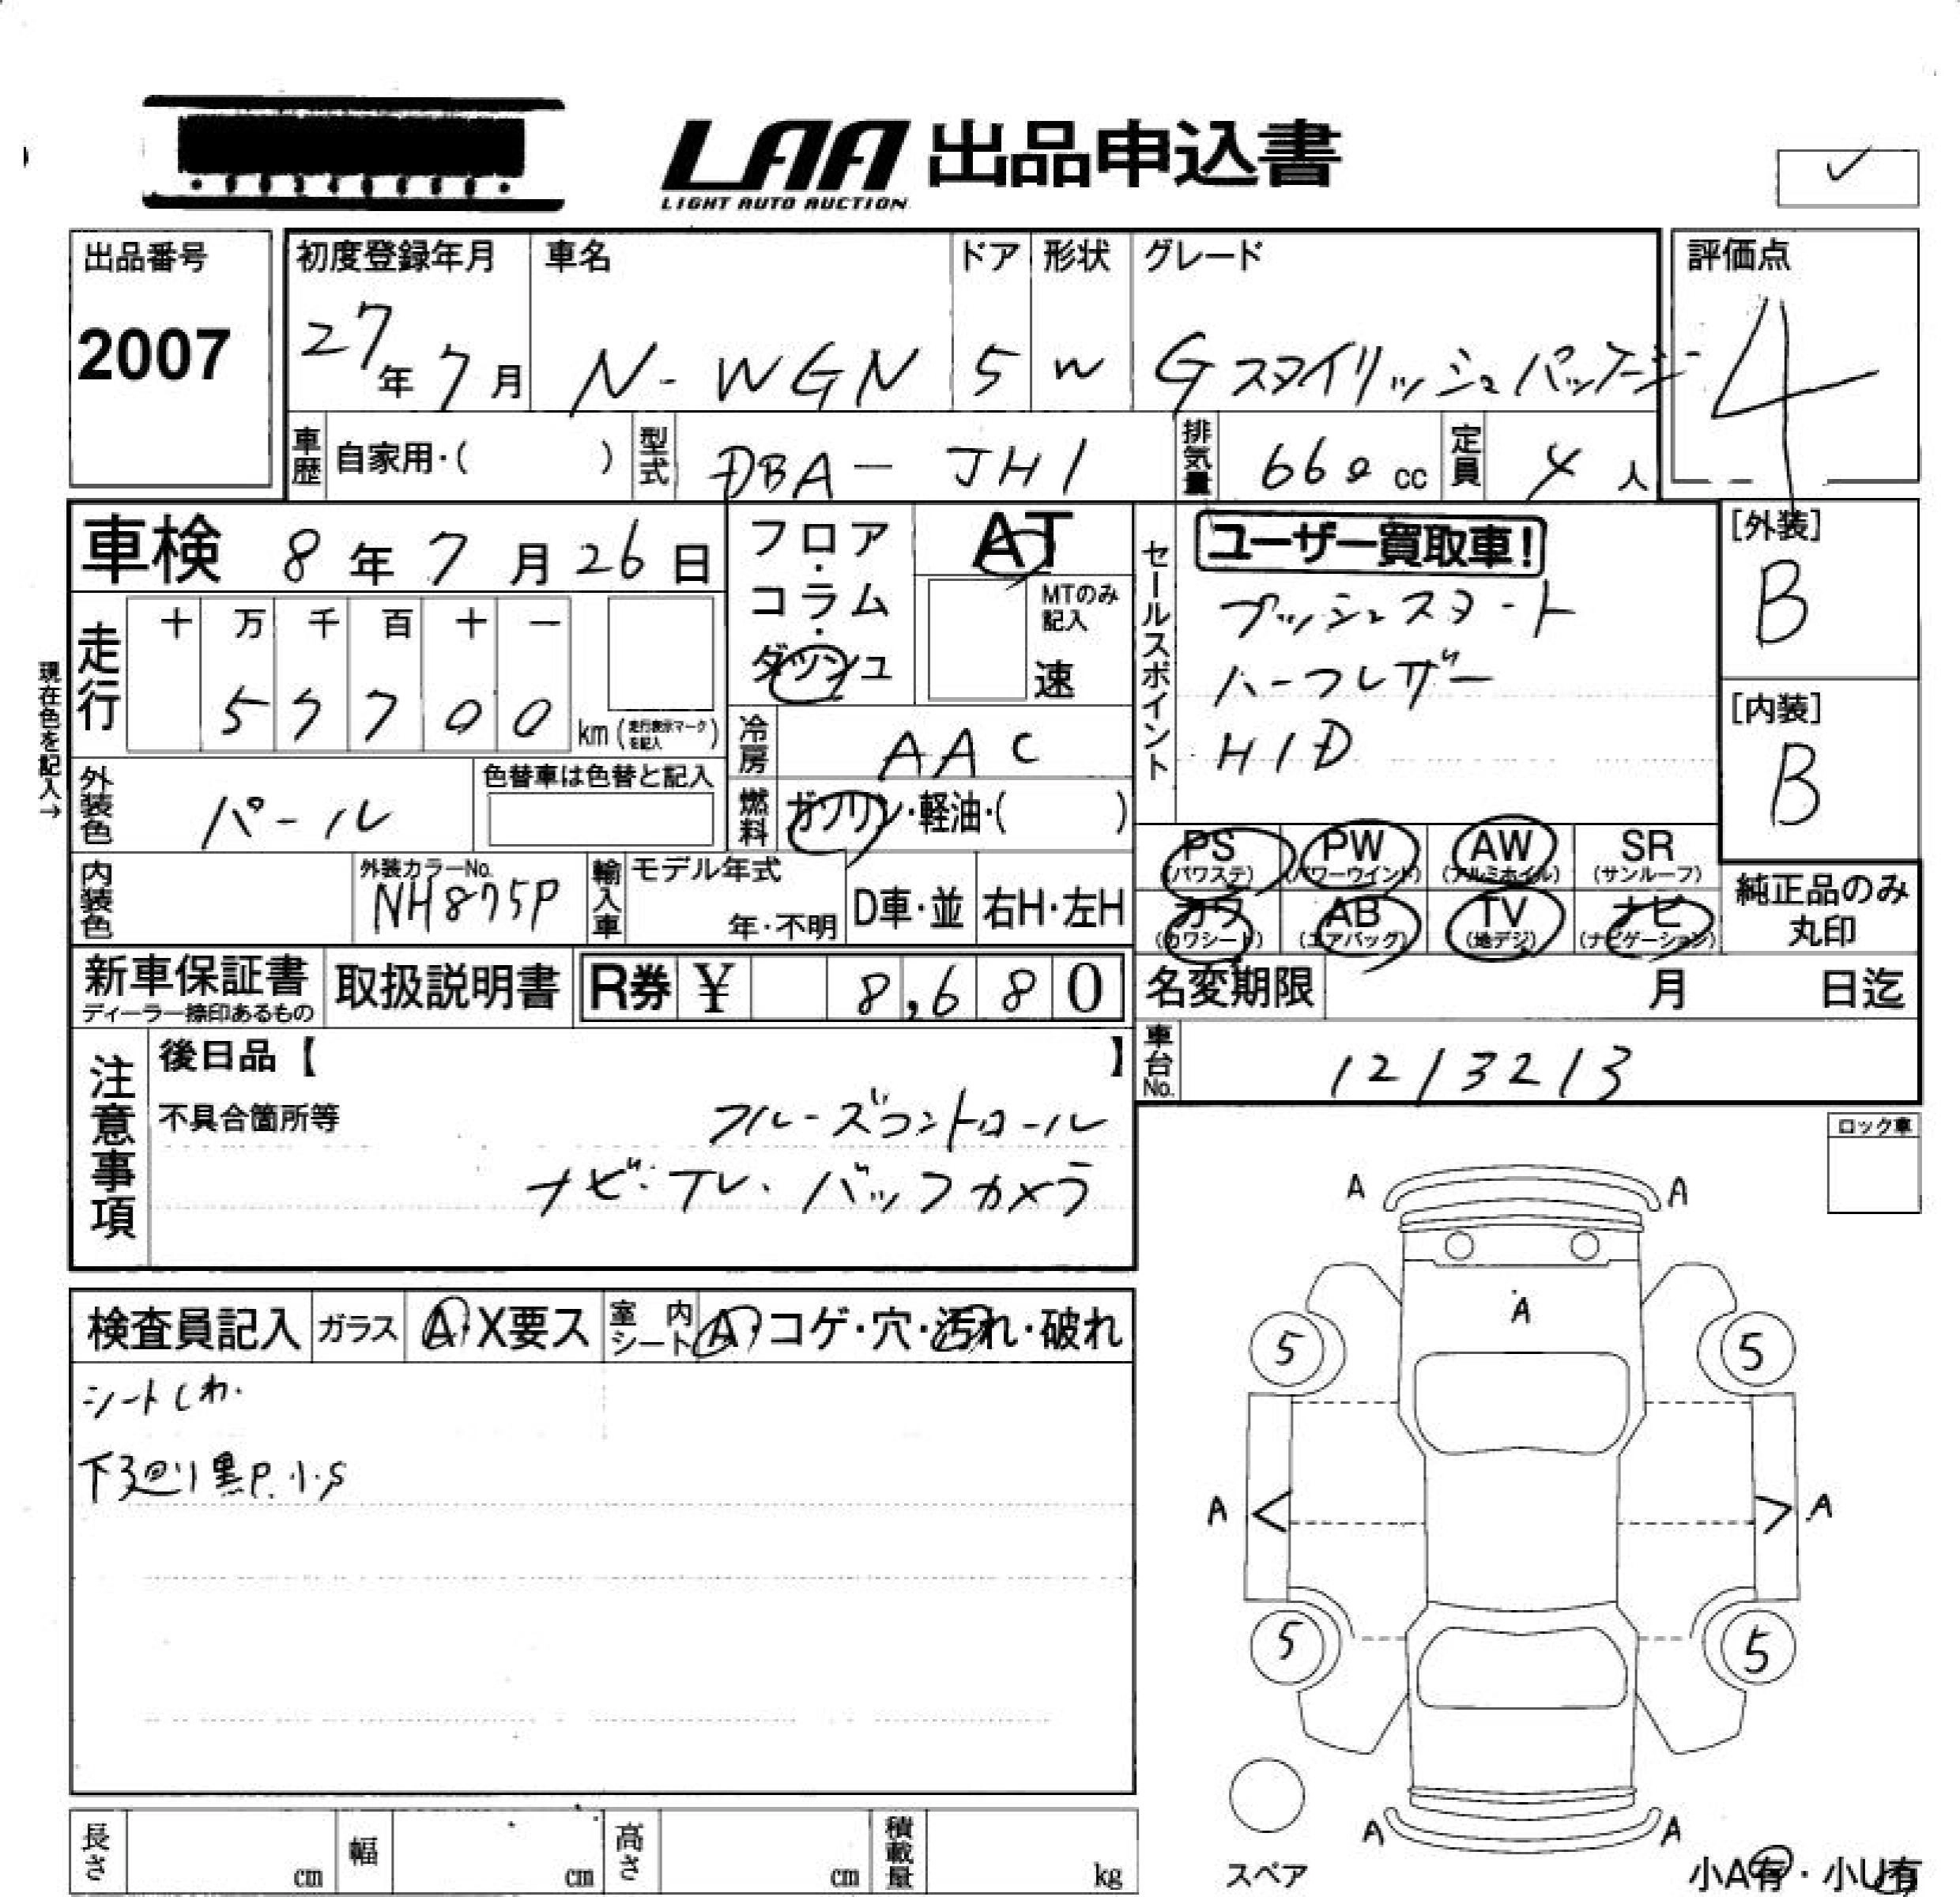 LAA 出品申込書
LIGHT AUTO AUCTION
✓
出品番号
2007
初度登録年月
27年7月
車名
N-WGN
ドア
5
形状
W
グレード
Gスタイリッシュパッケージ
評価点
4
車歴 自家用・( )
型式 DBA-JH1
排気量 660cc
定員 4人
車検 8年7月26日
フロア・コラム・ダッシュ
AT
MTのみ記入
速
走行
十 万 千 百 十 一
5 7 7 0 0 km(走行表示マークを記入)
冷房 AAC
現在色を記入→
外装色 パール
色替車は色替と記入
燃料 ガソリン・軽油・( )
内装色
外装カラーNo.
NH875P
輸入車
モデル年式
年・不明
D車・並
右H・左H
セールスポイント
ユーザー買取車!
プッシュスタート
ハーフレザー
HID
[外装]
B
[内装]
B
PS (パワステ) PW (パワーウインド) AW (アルミホイル) SR (サンルーフ)
カワ (カワシート) AB (エアバッグ) TV (地デジ) ナビ (ナビゲーション)
純正品のみ
丸印
新車保証書
ディーラー捺印あるもの
取扱説明書
R券 ¥ 8,680
名変期限 月 日迄
車台No. 1213213
注意事項
後日品【 】
不具合箇所等
クルーズコントロール
ナビ・TV・バックカメラ
ロック車
検査員記入 ガラス A・X要ス 室内シート A・コゲ・穴・汚れ・破れ
シートしわ.
下廻り黒P.小S
A A
A
5 5
A < > A
5 5
A A
スペア
小A有・小U有
長さ cm 幅 cm 高さ cm 積載量 kg